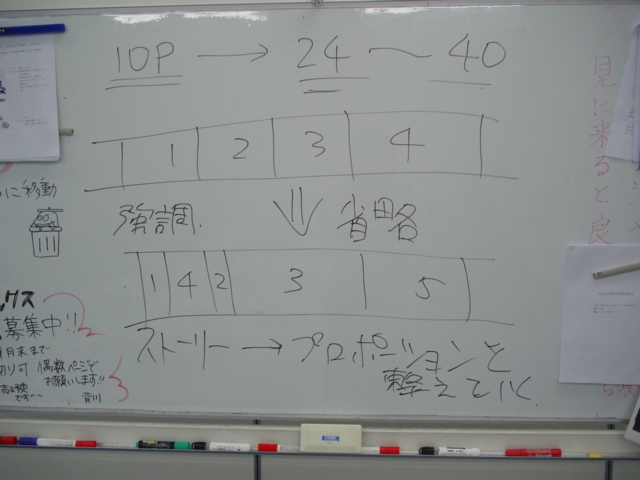 10P → 24 〜 40
1 2 3 4
強調. ⇓ 省略
1 4 2 3 5
ストーリー → プロポーションを
整えていく
に移動
募集中!!
月末まで
偶数ページで
お願いします!!
見に来ると良